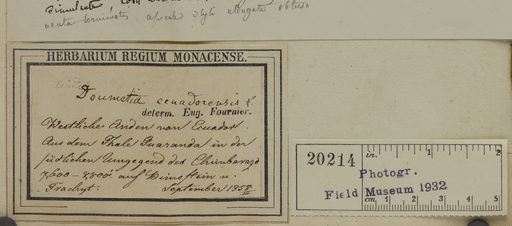 acuta terminatis, apicula styli elongato obtuso
HERBARIUM REGIUM MONACENSE.
Dournetia ecuadorensis f.
determ. Eug. Fournier.
Westliche Anden von Ecuador.
Aus dem Thale Guaranda in der
südlichen Umgegend des Chimborazo
7,600 - 8,800' auf Dünnstein u.
Trachyt. September 1858
20214
in. 1 2
Photogr.
Field Museum 1932
cm. 1 2 3 4 5